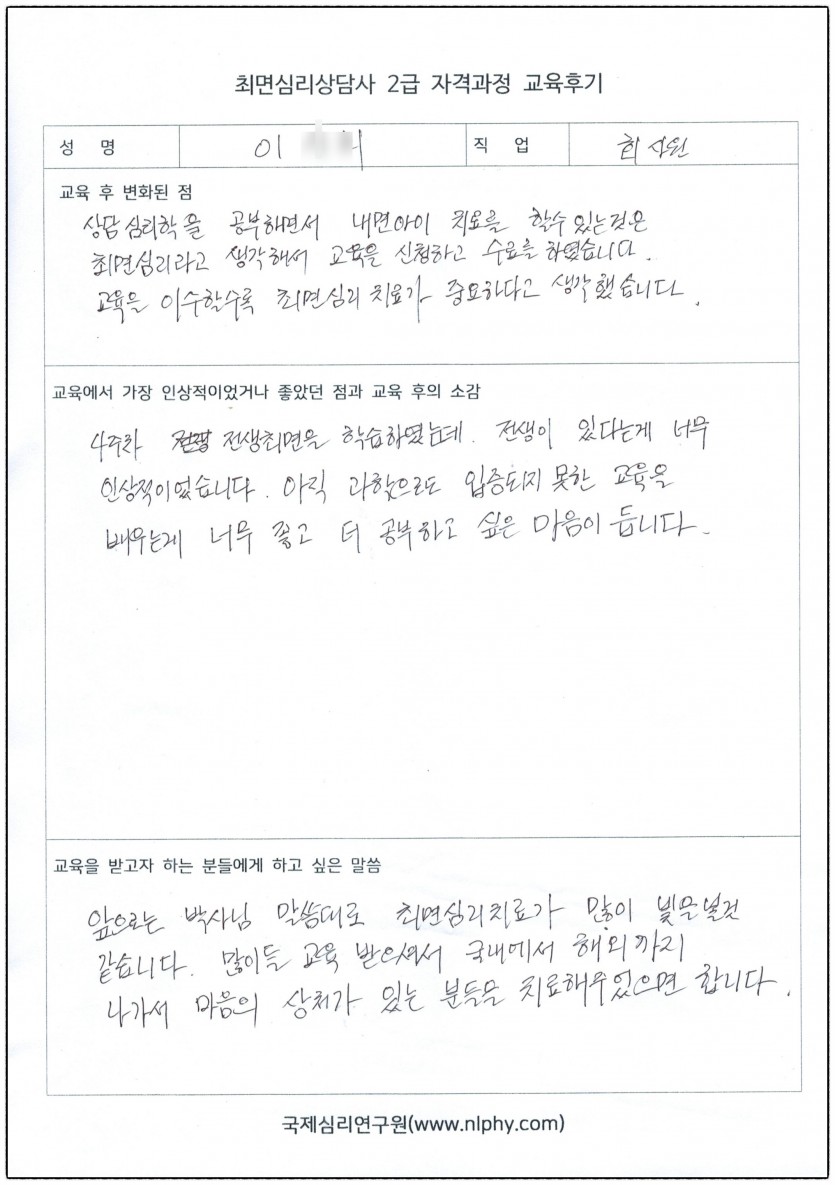 최면심리상담사 2급 자격과정 교육후기
성 명 이 직 업 회사원
교육 후 변화된 점
상담심리학을 공부하면서 내면아이 치료를 할수있는것은
최면심리라고 생각해서 교육을 신청하고 수료를 하였습니다.
교육을 이수할수록 최면심리 치료가 중요하다고 생각했습니다.
교육에서 가장 인상적이었거나 좋았던 점과 교육 후의 소감
4주차 전생최면을 학습하였는데. 전생이 있다는게 너무
인상적이었습니다. 아직 과학으로도 입증되지 못한 교육을
배우는게 너무 좋고 더 공부하고 싶은 마음이 듭니다.
교육을 받고자 하는 분들에게 하고 싶은 말씀
앞으로는 박사님 말씀대로 최면심리치료가 많이 빛을낼것
같습니다. 많이들 교육 받으셔서 국내에서 해외까지
나가서 마음의 상처가 있는 분들을 치료해주었으면 합니다.
국제심리연구원(www.nlphy.com)